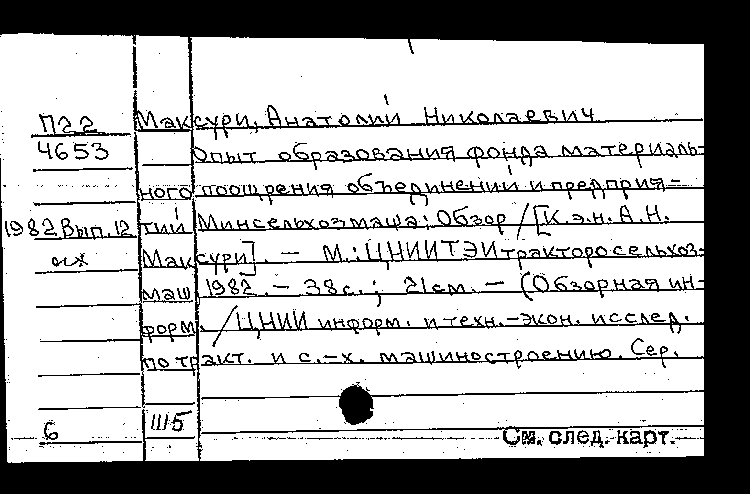 П22 Максури, Анатолий Николаевич
4653 Опыт образования фонда материаль-
ного поощрения объединений и предприя-
1982 Вып.12 тий Минсельхозмаша: Обзор / [К.э.н. А.Н.
Максури]. – М.: ЦНИИТЭИтракторосельхоз-
маш, 1982. – 38с.; 21см. – (Обзорная ин-
форм. / ЦНИИ информ. и техн.-экон. исслед.
по тракт. и с.-х. машиностроению. Сер.
6 III5
См. след. карт.